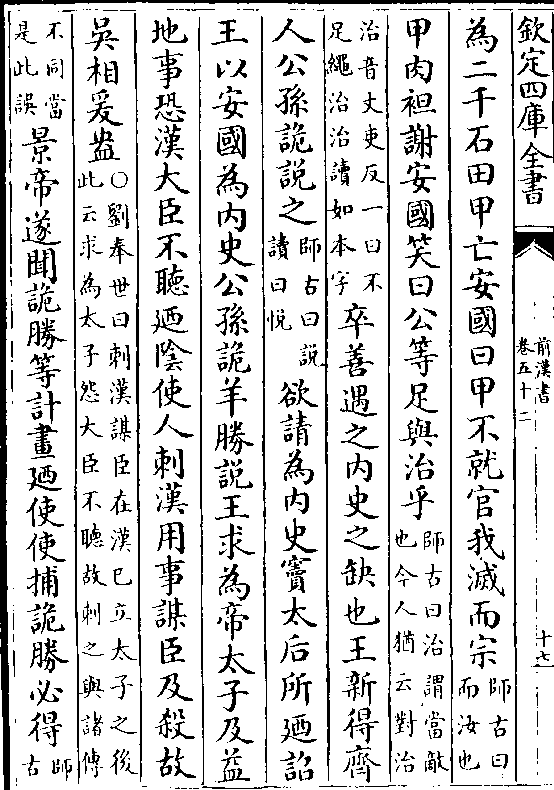 欽定四庫全書
前漢書
卷五十二
十七
為二千石田甲亡安國曰甲不就官我滅而宗師古曰而汝也
甲肉袒謝安國笑曰公等足與治乎師古曰治謂當敵也今人猶云對治
治音丈吏反一曰不足繩治治讀如本字卒善遇之内史之缺也王新得齊
人公孫詭説之師古曰説讀曰悦欲請為内史竇太后所廼詔
王以安國為内史公孫詭羊勝説王求為帝太子及益
地事恐漢大臣不聽廼陰使人刺漢用事謀臣及殺故
吳相爰盎○劉奉世曰刺漢謀臣在漢已立太子之後此云求為太子怨大臣不聽故刺之與諸傳
不同當是此誤景帝遂聞詭勝等計畫廼使使捕詭勝必得師古